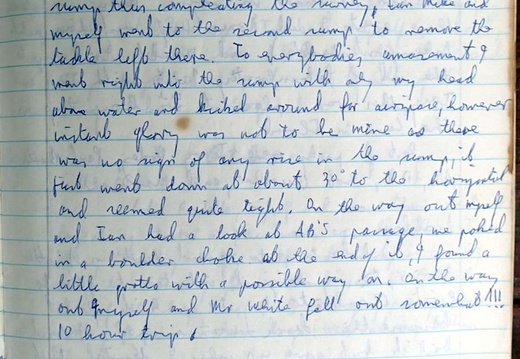 sump thus compleating the survey, Ian Mike and
myself went to the second sump to remove the
tackle left there. To everybodies amasement I
went right into the sump with only my head
above water and kicked around for airspace, however
instant glory was not to be mine as there
was no sign of any rise in the sump, it
just went down at about 30° to the horizontal
and seemed quite tight. On the way out myself
and Ian had a look at AB's passage, we poked
in a boulder choke at the end of it, I found a
little grotto with a possible way on. On the way
out myself and Mr White fell out somewhat!!!
10 hour trip.